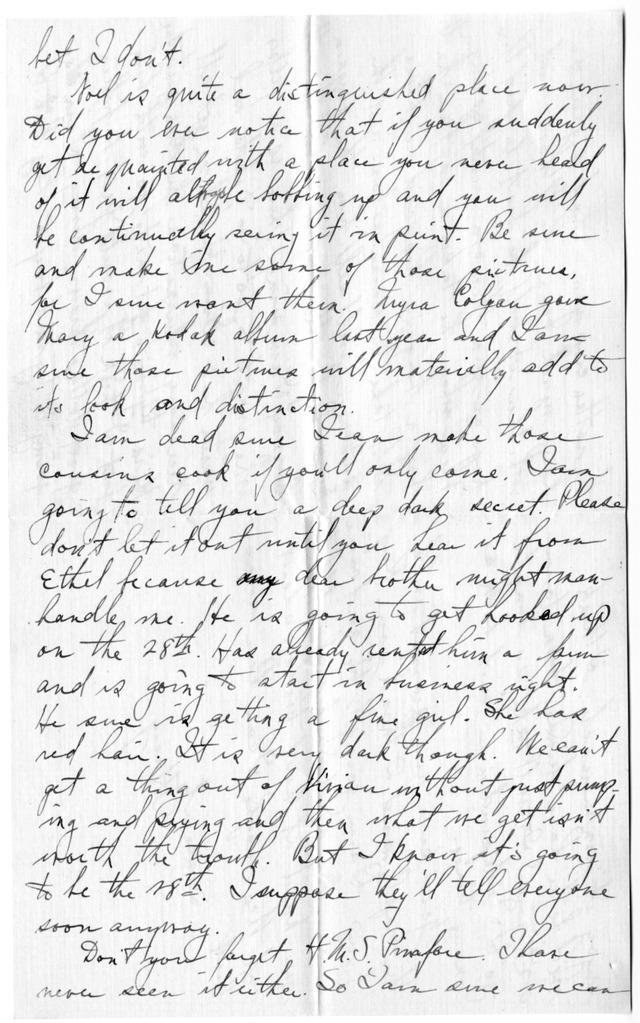 bet I don't.
Noel is quite a distinguished place now.
Did you ever notice that if you suddenly
get acquainted with a place you never heard
of it will be bobbing up and you will
be continually seeing it in print. Be sure
and make me some of those pictures,
for I sure want them. Myra Colgan gave
Mary a Kodak album last year and I am
sure those pictures will materially add to
its look and distinction.
I am dead sure I can make those
cousins cook if you'll only come. I am
going to tell you a deep dark secret. Please
don't let it out until you hear it from
Ethel because my dear brother might man-
handle me. He is going to get hooked up
on the 28th. Has already rented him a
and is going to start in business right.
He sure is getting a fine girl. She has
red hair. It is very dark though. We can't
get a thing out of Vivian without just pump-
ing and prying and then what we get isn't
worth the trouble. But I know it's going
to be the 28th. I suppose they'll tell everyone
soon anyway.
Don't you forget H.M.S. Pinafore. I have
never seen it either. So I am sure we can